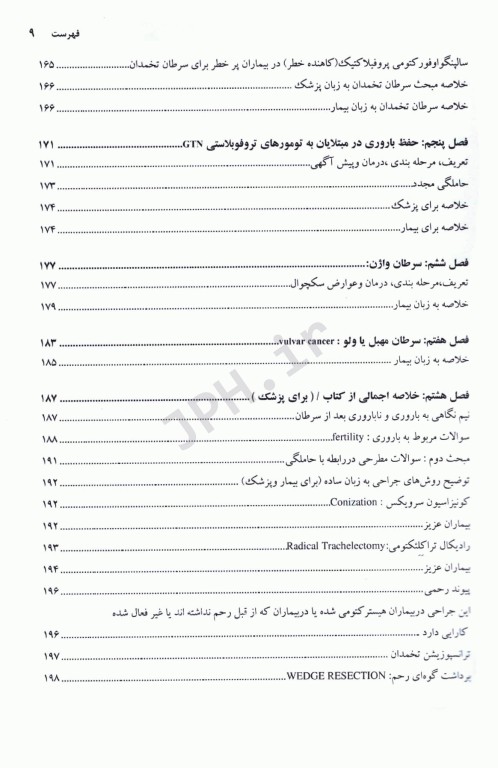 فهرست ۹
سالپنگواوفورکتومی پروفیلاکتیک(کاهنده خطر) در بیماران پر خطر برای سرطان تخمدان ۱۶۵
خلاصه مبحث سرطان تخمدان به زبان پزشک ۱۶۶
خلاصه سرطان تخمدان به زبان بیمار ۱۶۶
فصل پنجم: حفظ باروری در مبتلایان به تومورهای تروفوبلاستی GTN ۱۷۱
تعریف، مرحله بندی ،درمان وپیش آگهی ۱۷۱
حاملگی مجدد ۱۷۳
خلاصه برای پزشک ۱۷۴
خلاصه برای بیمار ۱۷۴
فصل ششم: سرطان واژن: ۱۷۷
تعریف،مرحله بندی، درمان وعوارض سکچوال ۱۷۷
خلاصه به زبان بیمار ۱۷۹
فصل هفتم: سرطان مهبل یا ولو : vulvar cancer ۱۸۳
خلاصه به زبان بیمار ۱۸۵
فصل هشتم: خلاصه اجمالی از کتاب / ( برای پزشک ) ۱۸۷
نیم نگاهی به باروری و ناباروری بعد از سرطان ۱۸۷
سوالات مربوط به باروری : fertility ۱۸۸
مبحث دوم : سوالات مطرحی دررابطه با حاملگی ۱۹۱
توضیح روش‌های جراحی به زبان ساده (برای بیمار وپزشک) ۱۹۲
کونیزاسیون سرویکس : Conization ۱۹۲
بیماران عزیز ۱۹۲
رادیکال تراکلئکتومی: Radical Trachelectomy ۱۹۳
بیماران عزیز ۱۹۴
پیوند رحمی ۱۹۶
این جراحی دربیماران هیسترکتومی شده یا دربیماران که از قبل رحم نداشته اند یا غیر فعال شده
کارایی دارد ۱۹۶
ترانسپوزیشن تخمدان ۱۹۷
برداشت گوه‌ای رحم: WEDGE RESECTION ۱۹۸
JPH.ir